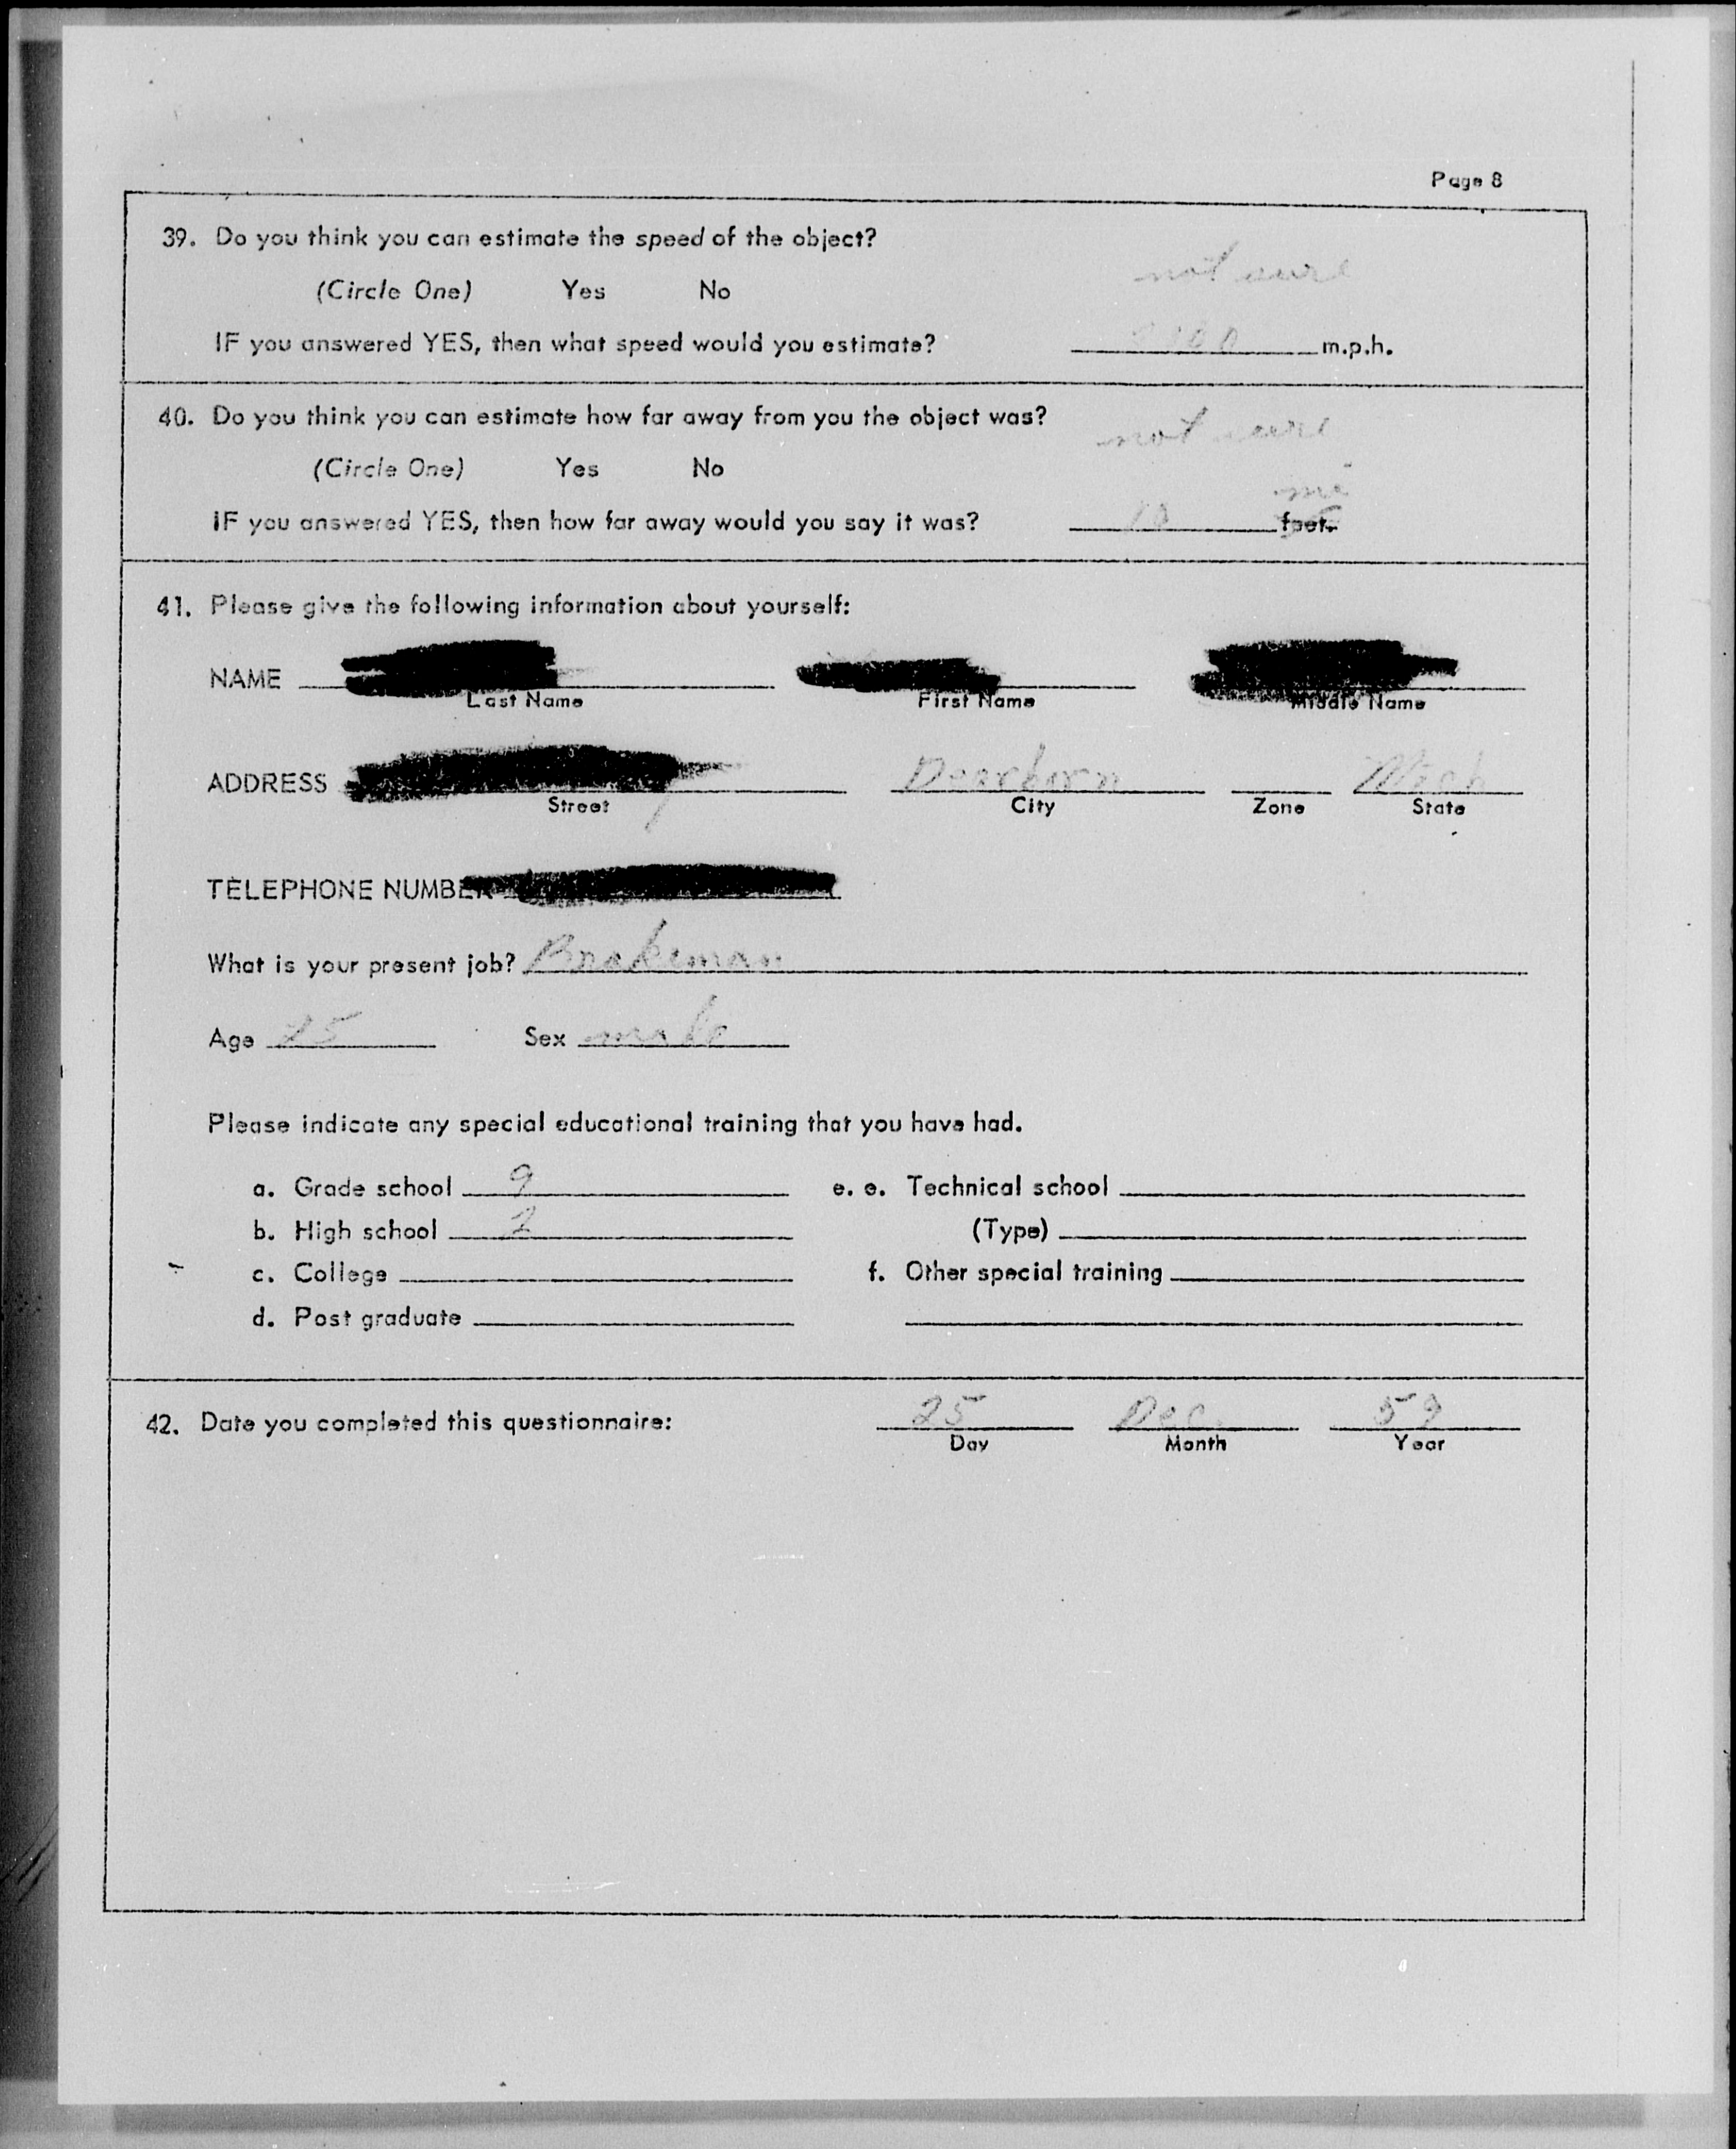 Page 8
39. Do you think you can estimate the speed of the object?
not sure
(Circle One) Yes No
IF you answered YES, then what speed would you estimate? m.p.h.
40. Do you think you can estimate how far away from you the object was?
not sure
(Circle One) Yes No
mi
IF you answered YES, then how far away would you say it was? 10 feet.
41. Please give the following information about yourself:
NAME
Last Name First Name Middle Name
ADDRESS Dearborn Mich
Street City Zone State
TELEPHONE NUMBER
What is your present job? Brakeman
Age 25 Sex male
Please indicate any special educational training that you have had.
a. Grade school 9 e. e. Technical school
b. High school 2 (Type)
c. College f. Other special training
d. Post graduate
42. Date you completed this questionnaire: 25 Dec. 59
Day Month Year